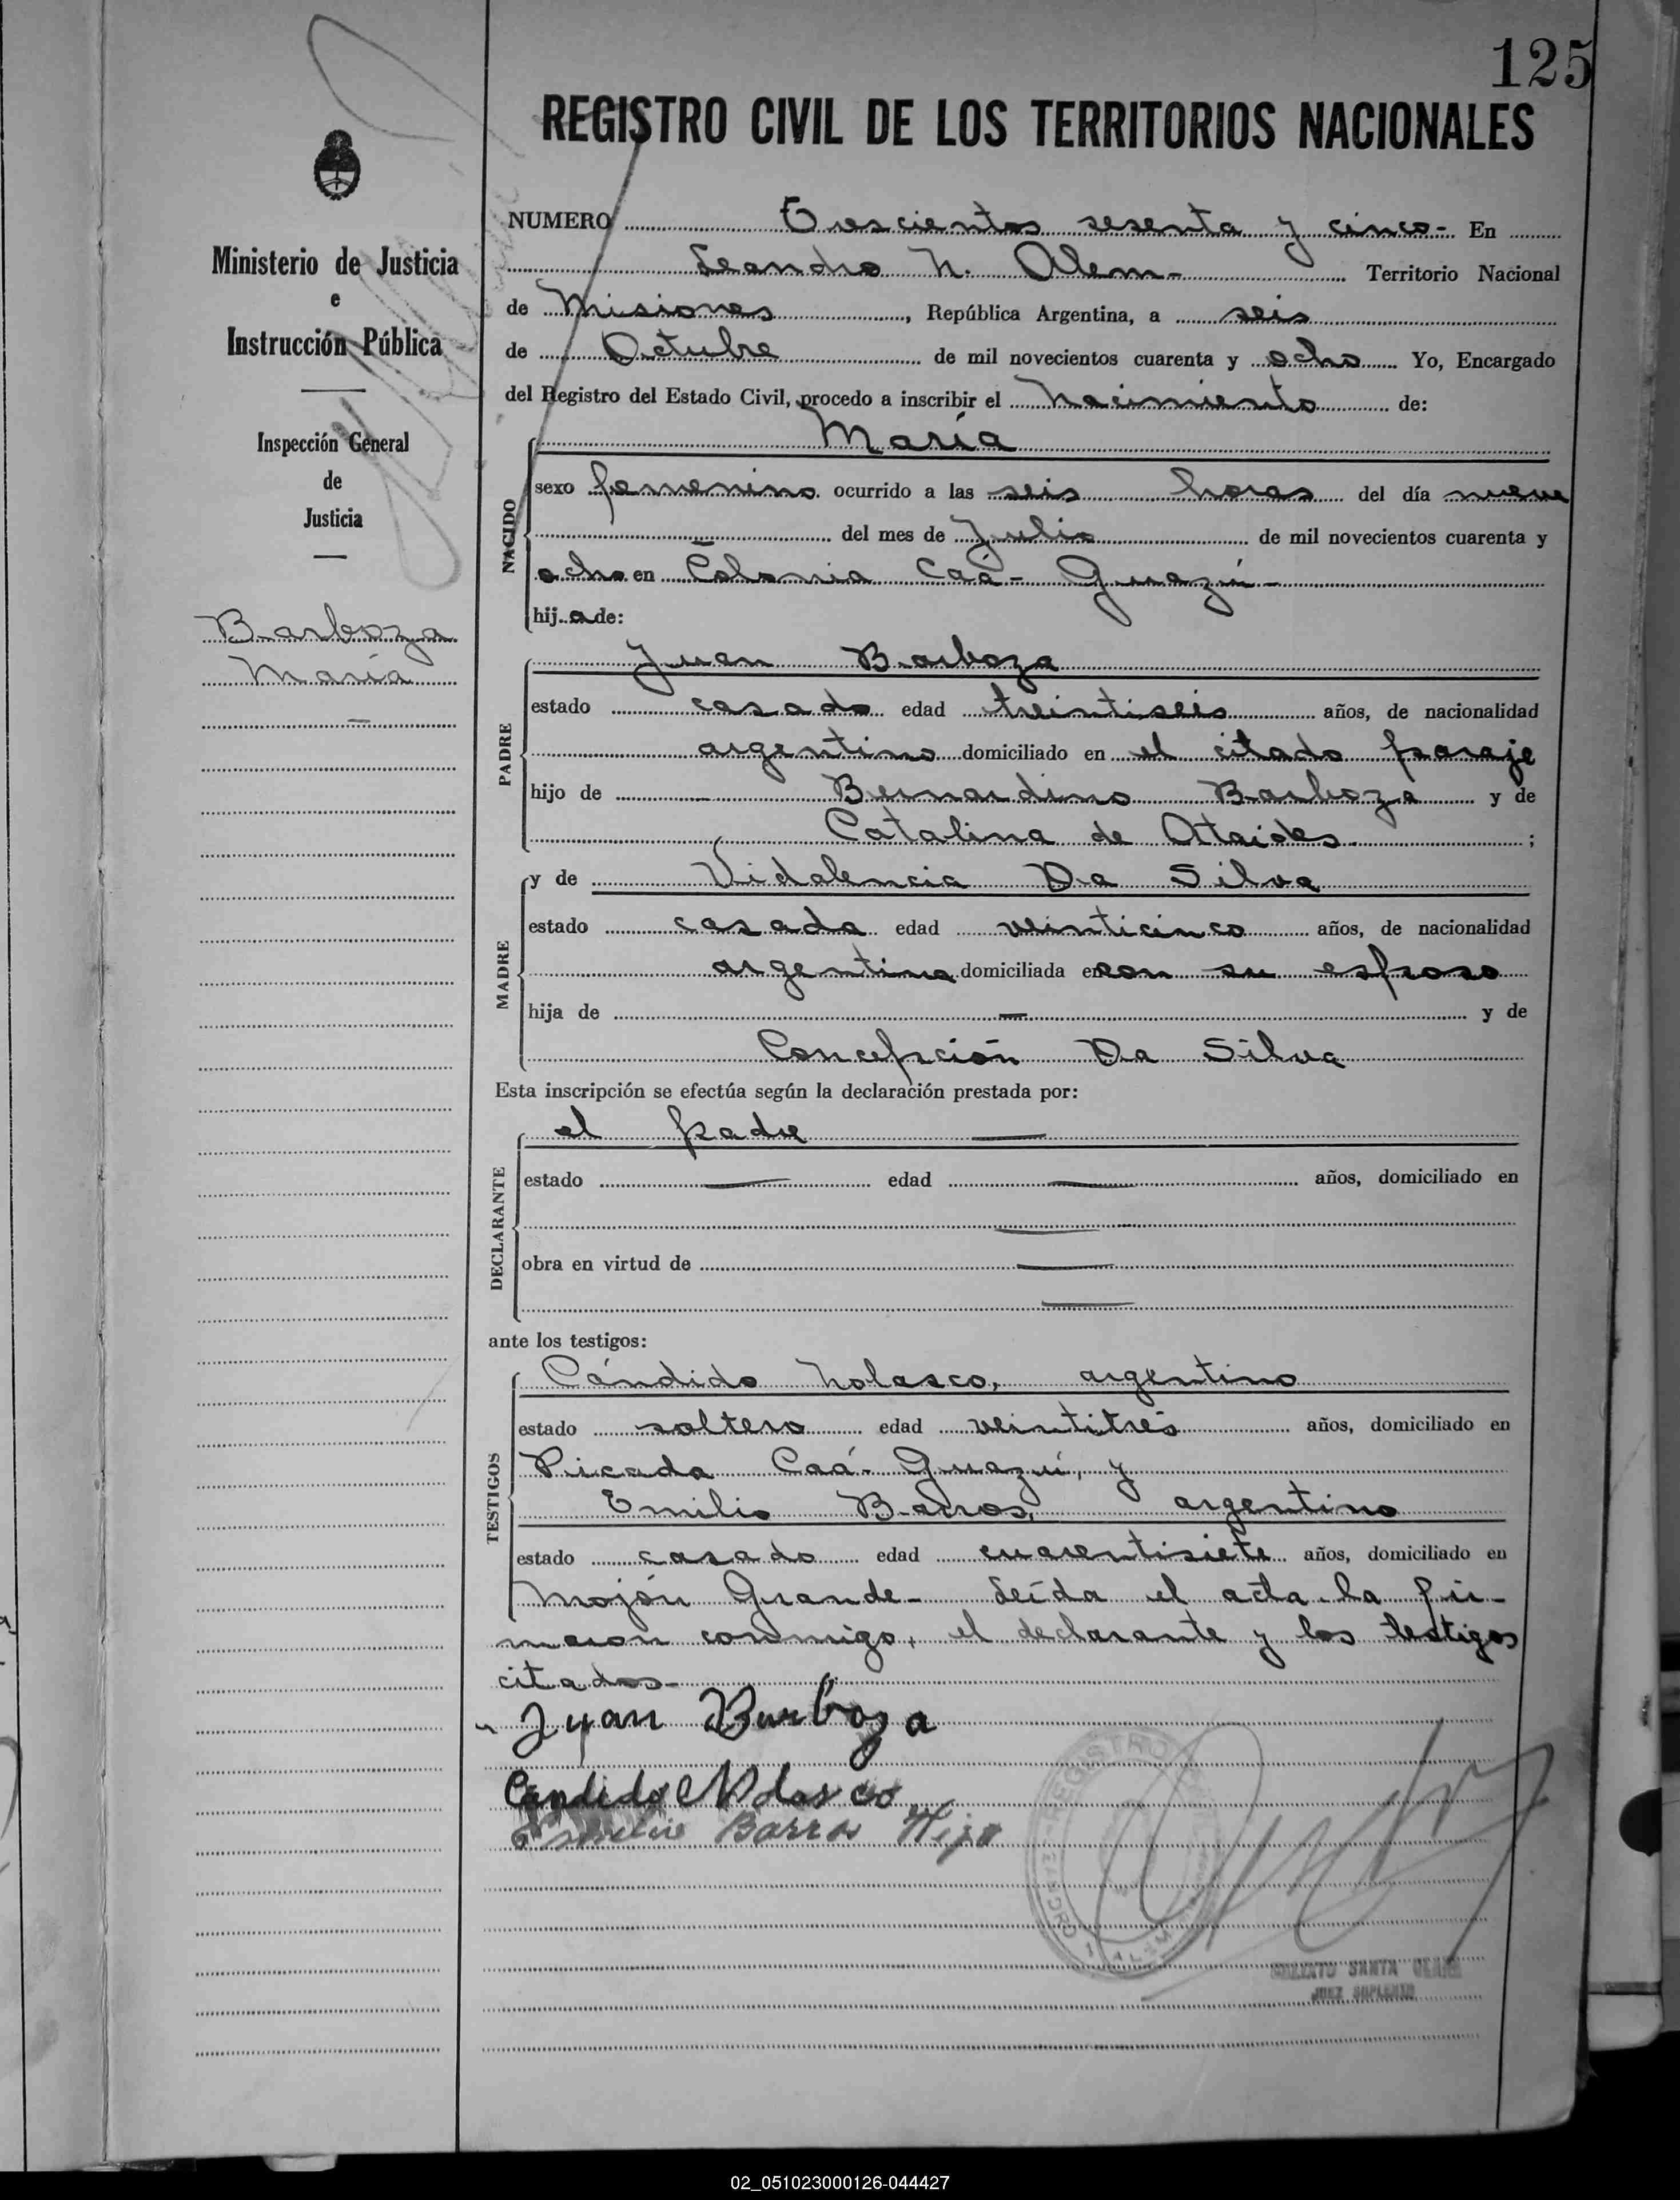 125
REGISTRO CIVIL DE LOS TERRITORIOS NACIONALES
Ministerio de Justicia
e
Instrucción Pública
Inspección General
de
Justicia
Barboza
María
NUMERO Trescientos sesenta y cinco- En
Leandro N. Alem- Territorio Nacional
de Misiones, República Argentina, a seis
de Octubre de mil novecientos cuarenta y ocho Yo, Encargado
del Registro del Estado Civil, procedo a inscribir el Nacimiento de:
NACIDO
María
sexo femenino ocurrido a las seis horas del día nueve
del mes de Julio de mil novecientos cuarenta y
ocho en Colonia Caá-Guazú-
hija de:
PADRE
Juan Barboza
estado casado edad treintiseis años, de nacionalidad
argentino domiciliado en el citado paraje
hijo de Bernardino Barboza y de
Catalina de Ataides ;
MADRE
y de Vidalencia Da Silva
estado casada edad veinticinco años, de nacionalidad
argentina domiciliada en con su esposo
hija de — y de
Concepción Da Silva
Esta inscripción se efectúa según la declaración prestada por:
DECLARANTE
el padre —
estado — edad — años, domiciliado en
—
obra en virtud de —
—
ante los testigos:
TESTIGOS
Cándido Nolasco, argentino
estado soltero edad veintitrés años, domiciliado en
Picada Caá-Guazú, y
Emilio Barros, argentino
estado casado edad cuarentisiete años, domiciliado en
Mojón Grande- Leída el acta la fir-
maron conmigo, el declarante y los testigos
citados-
Juan Barboza
Candido Nolasco
Emilio Barros Hijo
REGISTRO
SANTA
JUEZ SUPLENTE
02_051023000126-044427